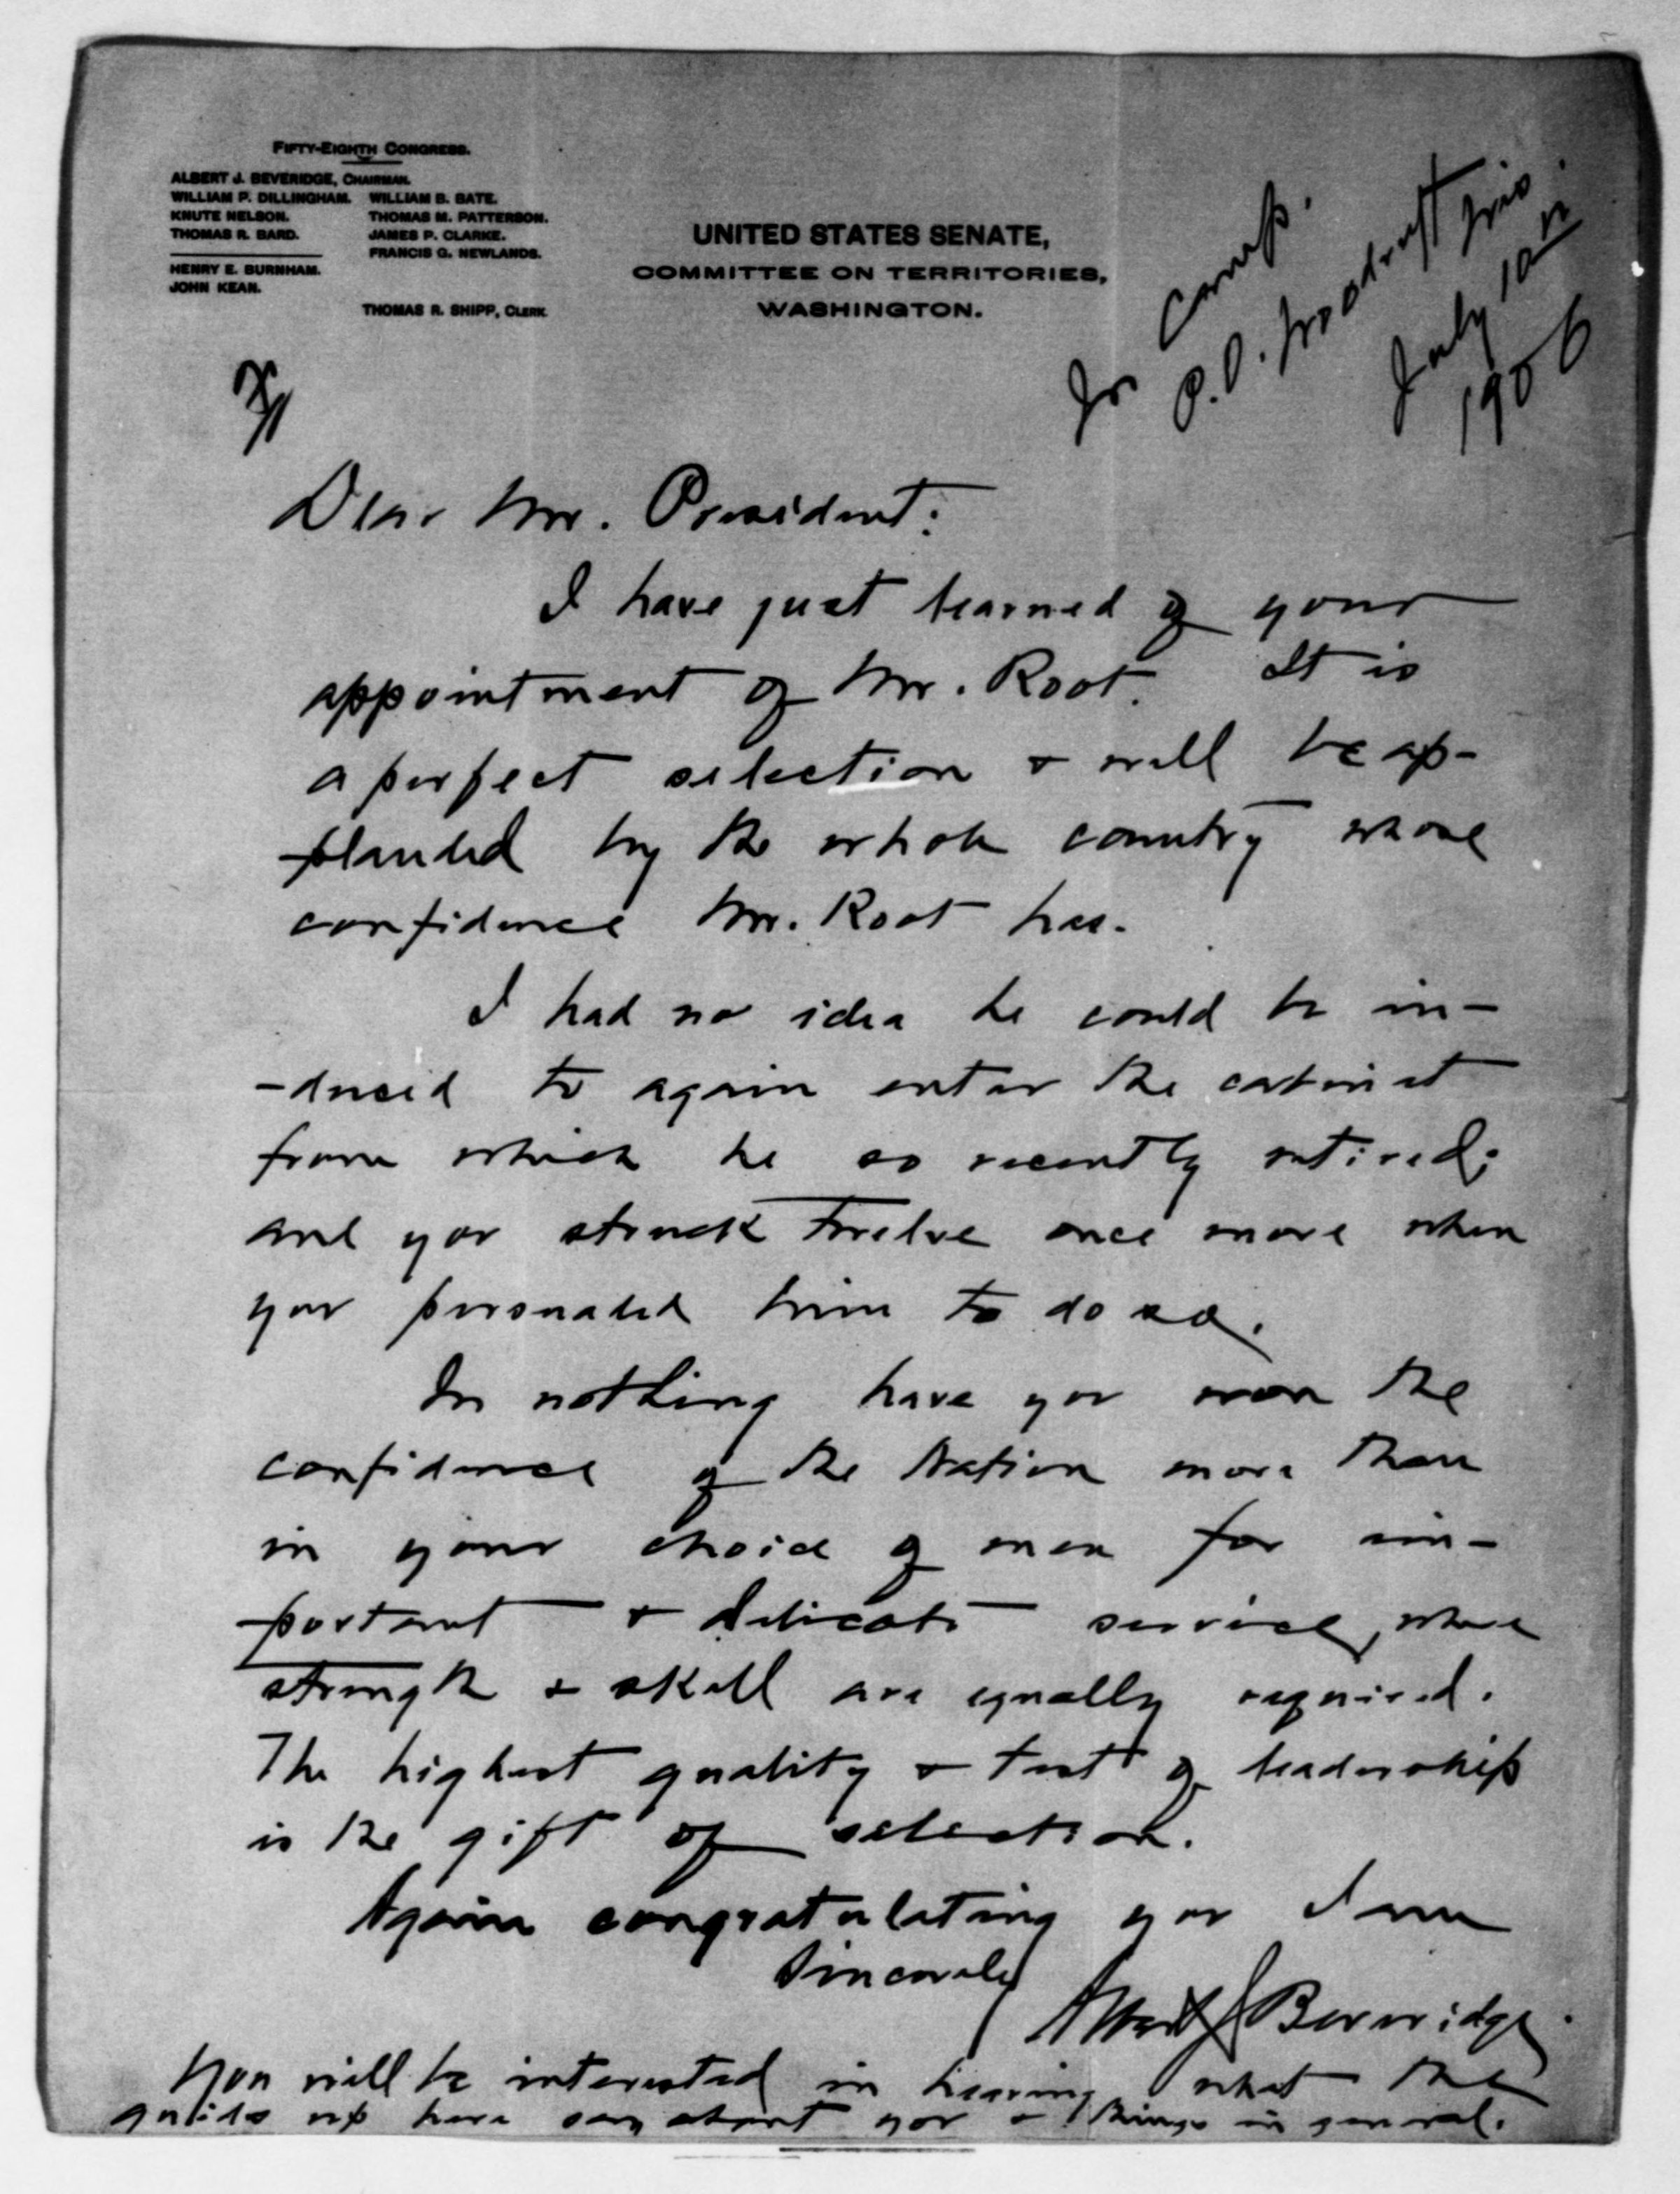 FIFTY-EIGHTH CONGRESS.
ALBERT J. BEVERIDGE, CHAIRMAN.
WILLIAM P. DILLINGHAM. WILLIAM B. BATE.
KNUTE NELSON. THOMAS M. PATTERSON.
THOMAS R. BARD. JAMES P. CLARKE.
FRANCIS G. NEWLANDS.
HENRY E. BURNHAM.
JOHN KEAN.
THOMAS R. SHIPP, CLERK
UNITED STATES SENATE,
COMMITTEE ON TERRITORIES,
WASHINGTON.
In camp.
P.O. Woodruff Wis.
July 10th
1906
Dear Mr. President:
I have just learned of your
appointment of Mr. Root. It is
a perfect selection & will be ap-
-plauded by the whole country whose
confidence Mr. Root has.
I had no idea he could be in-
-duced to again enter the cabinet
from which he so recently retired;
and you struck twelve once more when
you persuaded him to do so.
In nothing have you won the
confidence of the Nation more than
in your choice of men for im-
-portant & delicate service, where
strength & skill are equally required.
The highest quality & test of leadership
is the gift of selection.
Again congratulating you I am
Sincerely
Albert J Beveridge.
You will be interested in hearing what the
guides up here say about you & things in general.